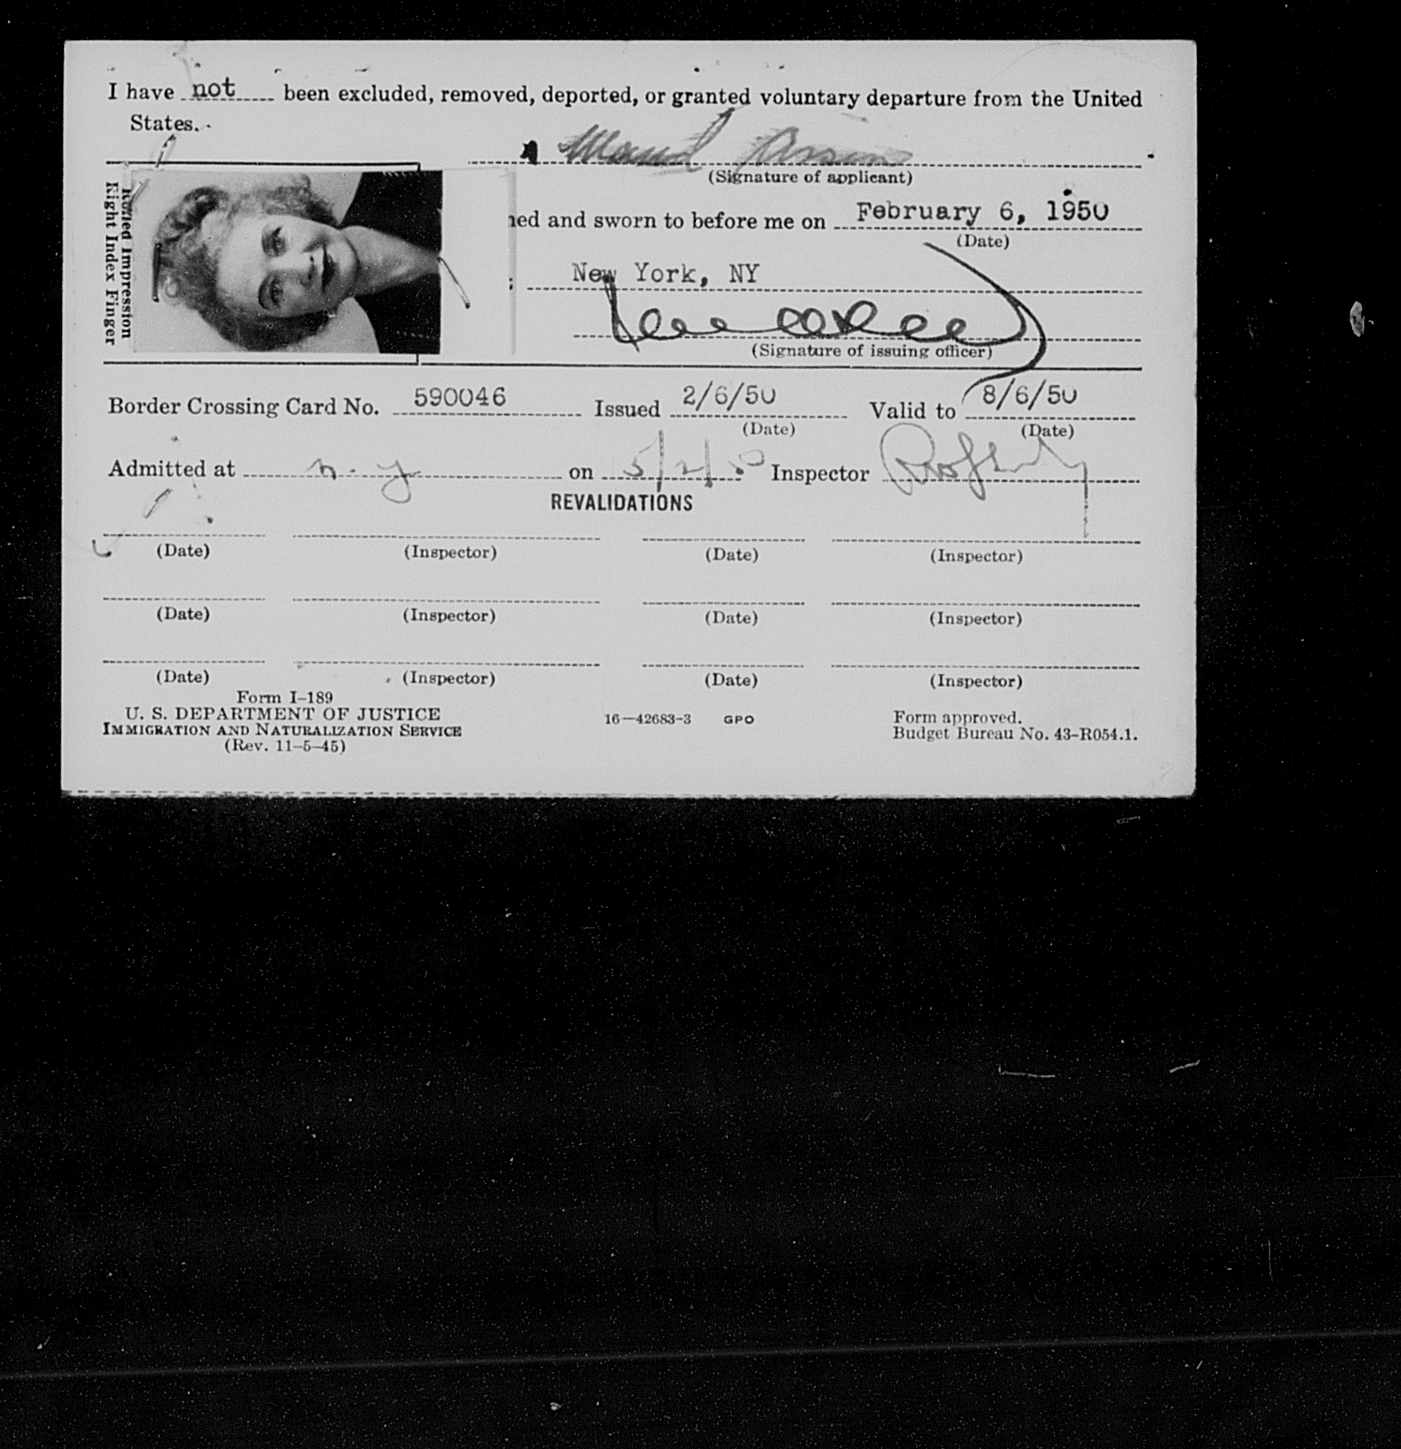 I have not been excluded, removed, deported, or granted voluntary departure from the United
States.
(Signature of applicant)
Rolled Impression
Right Index Finger
ned and sworn to before me on February 6, 1950
(Date)
: New York, NY
(Signature of issuing officer)
Border Crossing Card No. 590046 Issued 2/6/50 Valid to 8/6/50
(Date) (Date)
Admitted at n.y. on 5/2/50 Inspector
REVALIDATIONS
(Date) (Inspector) (Date) (Inspector)
(Date) (Inspector) (Date) (Inspector)
(Date) (Inspector) (Date) (Inspector)
Form I-189
U. S. DEPARTMENT OF JUSTICE
IMMIGRATION AND NATURALIZATION SERVICE
(Rev. 11-5-45)
16—42683-3 GPO
Form approved.
Budget Bureau No. 43-R054.1.